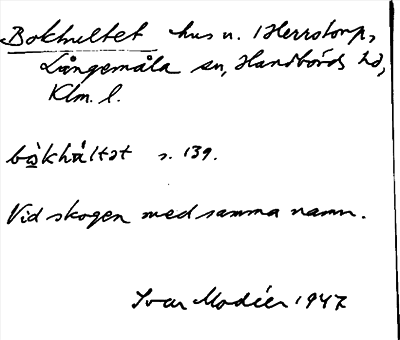 Bokhultet hus u. Herrstorp,
Långemåla sn, Handbörds hd,
Klm. l.
bo̠khúltət s. 139.
Vid skogen med samma namn.
Ivar Modéer 1947